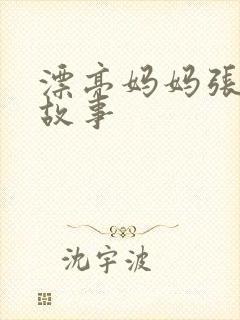 漂亮妈妈張
故事
沈宇波